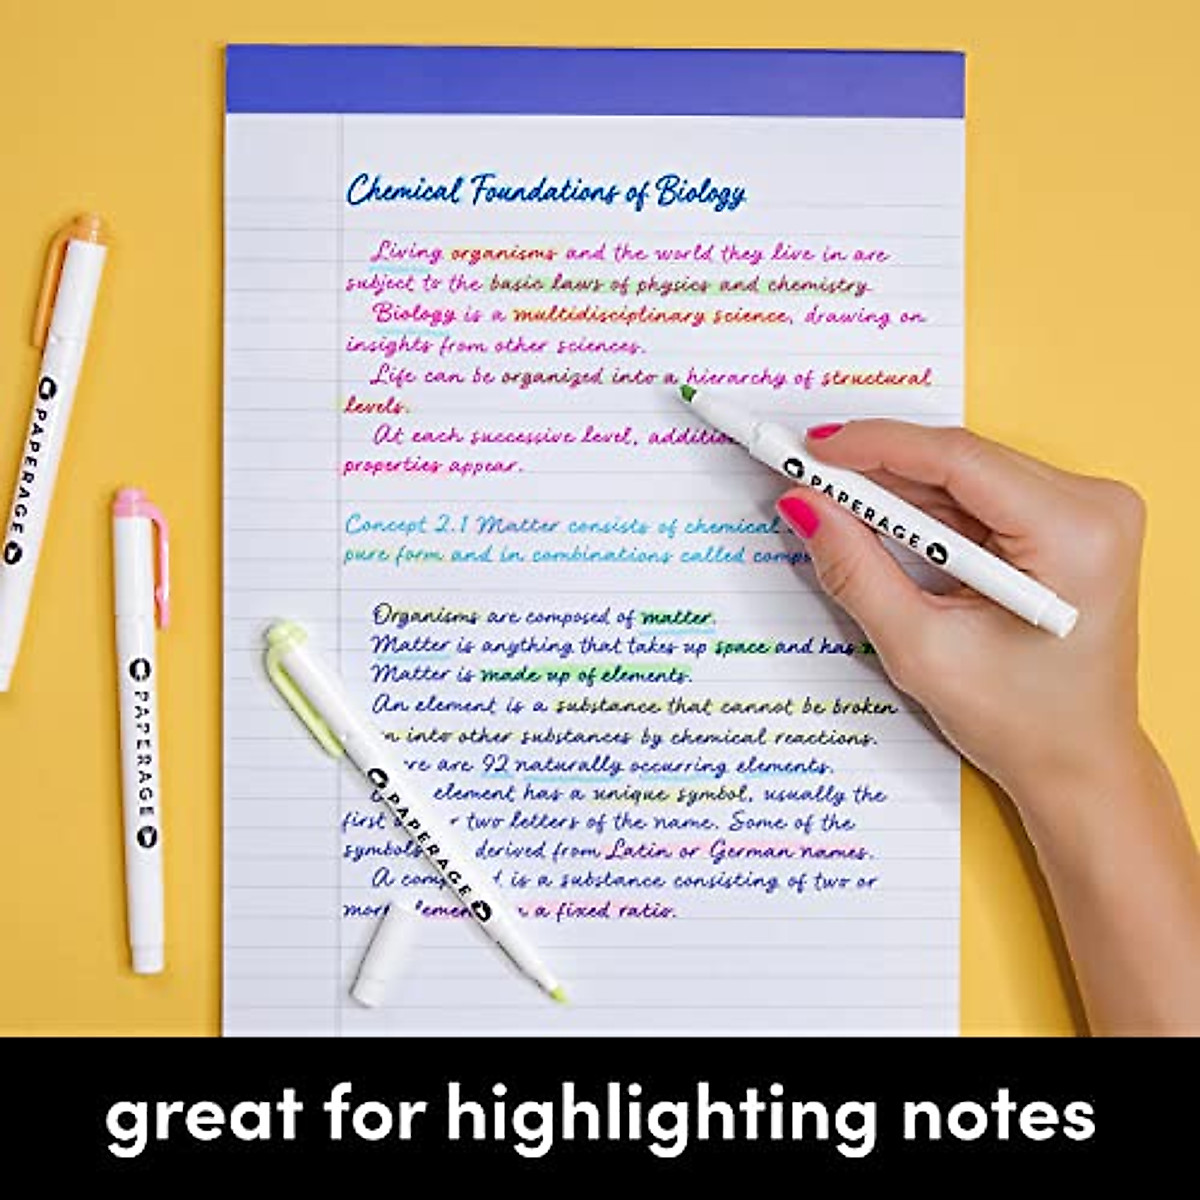 Chemical Foundations of Biology
Living organisms and the world they live in are
subject to the basic laws of physics and chemistry.
Biology is a multidisciplinary science, drawing on
insights from other sciences.
Life can be organized into a hierarchy of structural
levels.
At each successive level,
properties appear.
Concept 2.1 Matter consists of chemical
pure form and in combinations called
Organisms are composed of matter.
Matter is anything that takes up space and has
Matter is made up of elements.
An element is a substance that cannot be broken
into other substances by chemical reactions.
are 92 naturally occurring elements.
element has a unique symbol, usually the
first two letters of the name. Some of the
symbols derived from Latin or German names.
A is a substance consisting of two or
a fixed ratio.
PAPERAGE
PAPERAGE
PAPERAGE
PAPERAGE
great for highlighting notes